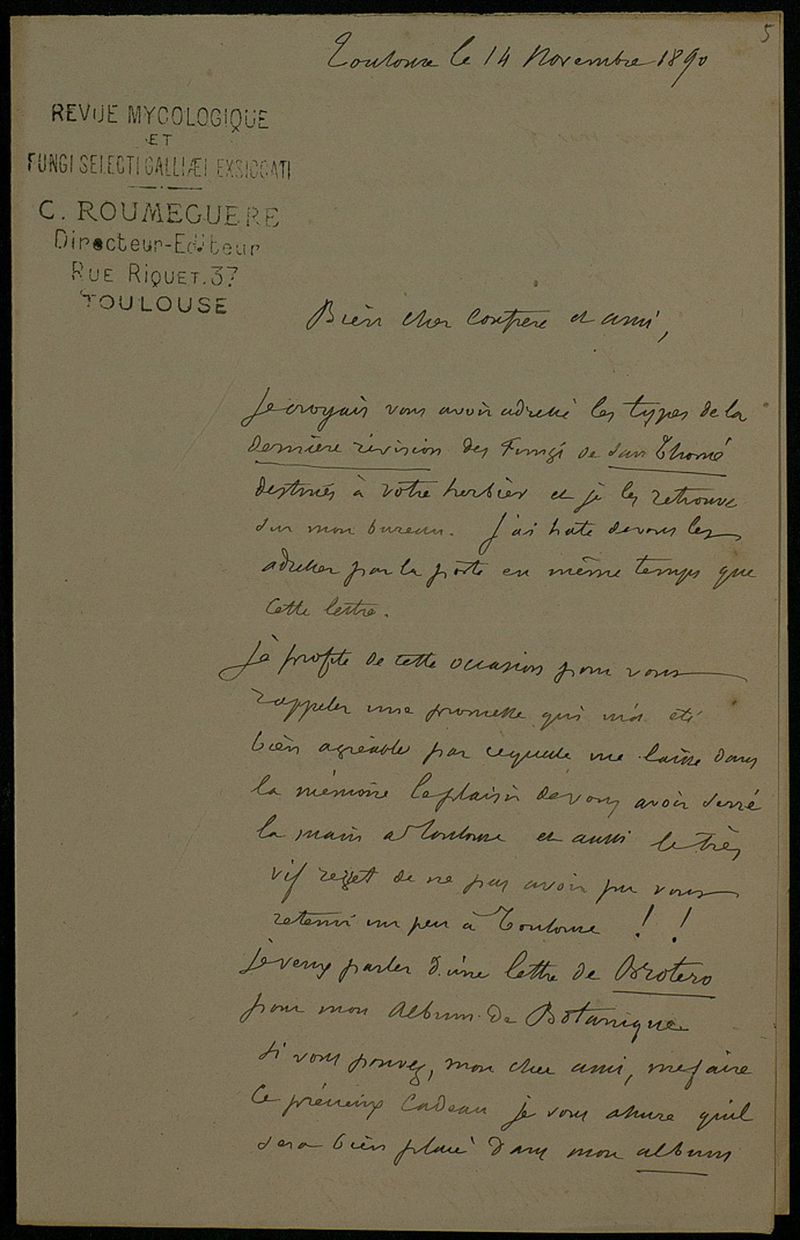 5
Toulouse le 14 Novembre 1890
REVUE MYCOLOGIQUE
ET
FUNGI SELECTI GALLIÆI EXSICCATI
C. ROUMEGUERE
Directeur-Editeur
RUE RIQUET.37
TOULOUSE
Bien cher confrere et ami,
Je croyais vous avoir adressé les types de la
dernière révision des Fungi de San Thomé
destinés à votre herbier et je les retrouve
sur mon bureau. J'ai hate de vous les
adresser par la poste en même temps que
cette lettre.
Je profite de cette occasion pour vous
rappeler une promesse qui m'a été
bien agréable par ce qu'elle me laisse dans
la mémoire le plaisir de vous avoir serré
la main a Toulouse et aussi le très
vif regret de ne pas avoir pu vous
retenir un peu à Toulouse !!
Je veux parler d'une lettre de Brotero
pour mon Album de Botanique
si vous pouvez, mon cher ami, me faire
ce précieux cadeau je vous assure qu'il
sera bien placé dans mon album